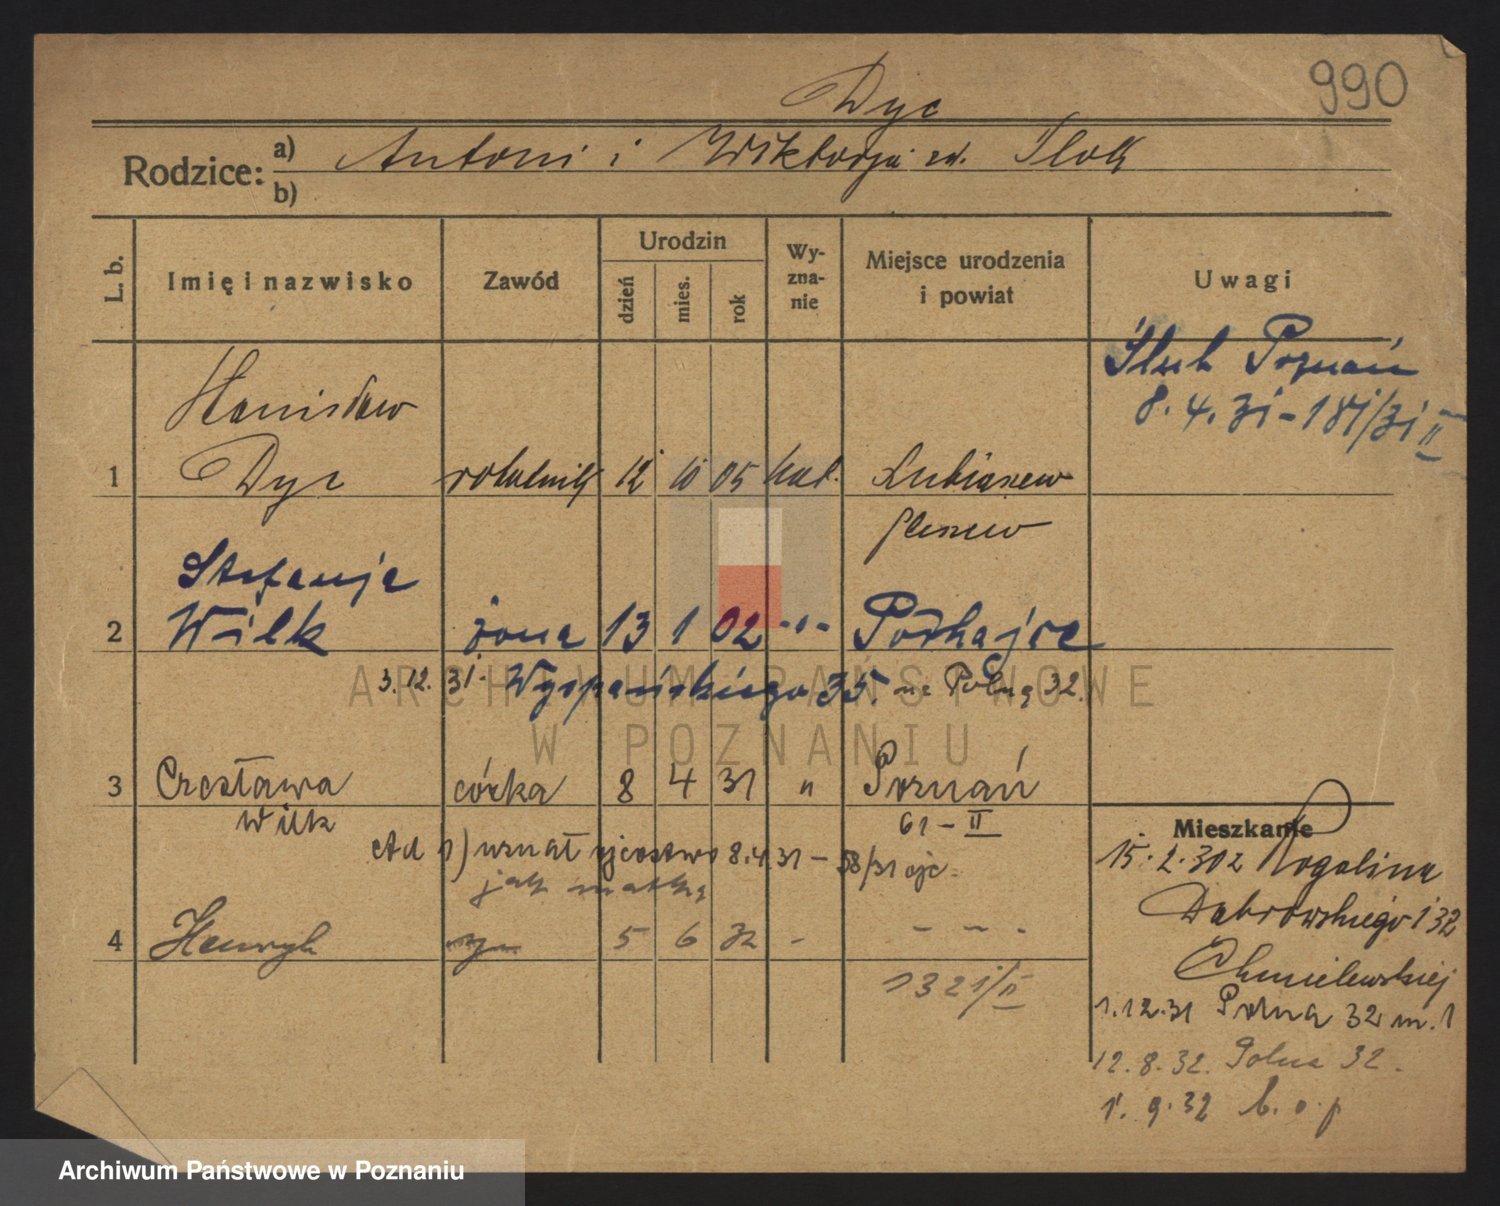 990
Dyc
Rodzice: a) Antoni i Wiktorja zd. Tlok
b)
L. b. Imię i nazwisko Zawód Urodzin dzień mies. rok Wy-zna-nie Miejsce urodzenia i powiat Uwagi
Ślub Poznań
8. 4. 31 - 181/31 II
Stanisław
1 Dyc robotnik 12 10 05 kat.
Pleszew
Stefanja
2 Wilk żona 13 1 02 -"- Podhajce
3. 12. 31. Wyspańskiego 35. na Polną 32.
3 Czesława córka 8 4 31 " Poznań
Wilk 61 - II
Ad 1) uznał ojcostwo 8.4.31 - 58/31 ojc.
jak matka
4 Henryk syn 5 6 32 - - - -
1321/II
Mieszkanie
15. 2. 30 Rogalina
Dąbrowskiego 132
Chmielewskiej
1.12.31 Polna 32 m. 1
12. 8. 32. Polna 32.
1. 9. 32 b. o. p
ARCHIWUM PAŃSTWOWE
W POZNANIU
Archiwum Państwowe w Poznaniu